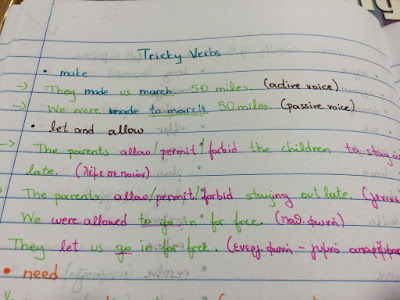 Tricky Verbs
• make
→ They made us march 50 miles. (active voice)
→ We were made to march 50 miles. (passive voice)
• let and allow
→ The parents allow/permit/forbid the children to stay
late. (λέμε σε ποιον)
The parents allow/permit/forbid staying out late. (γενικά
We were allowed to go in for free. (παθ. φωνή)
They let us go in for free. (ενεργ. φωνή - γυμνό απαρέμφα
• need